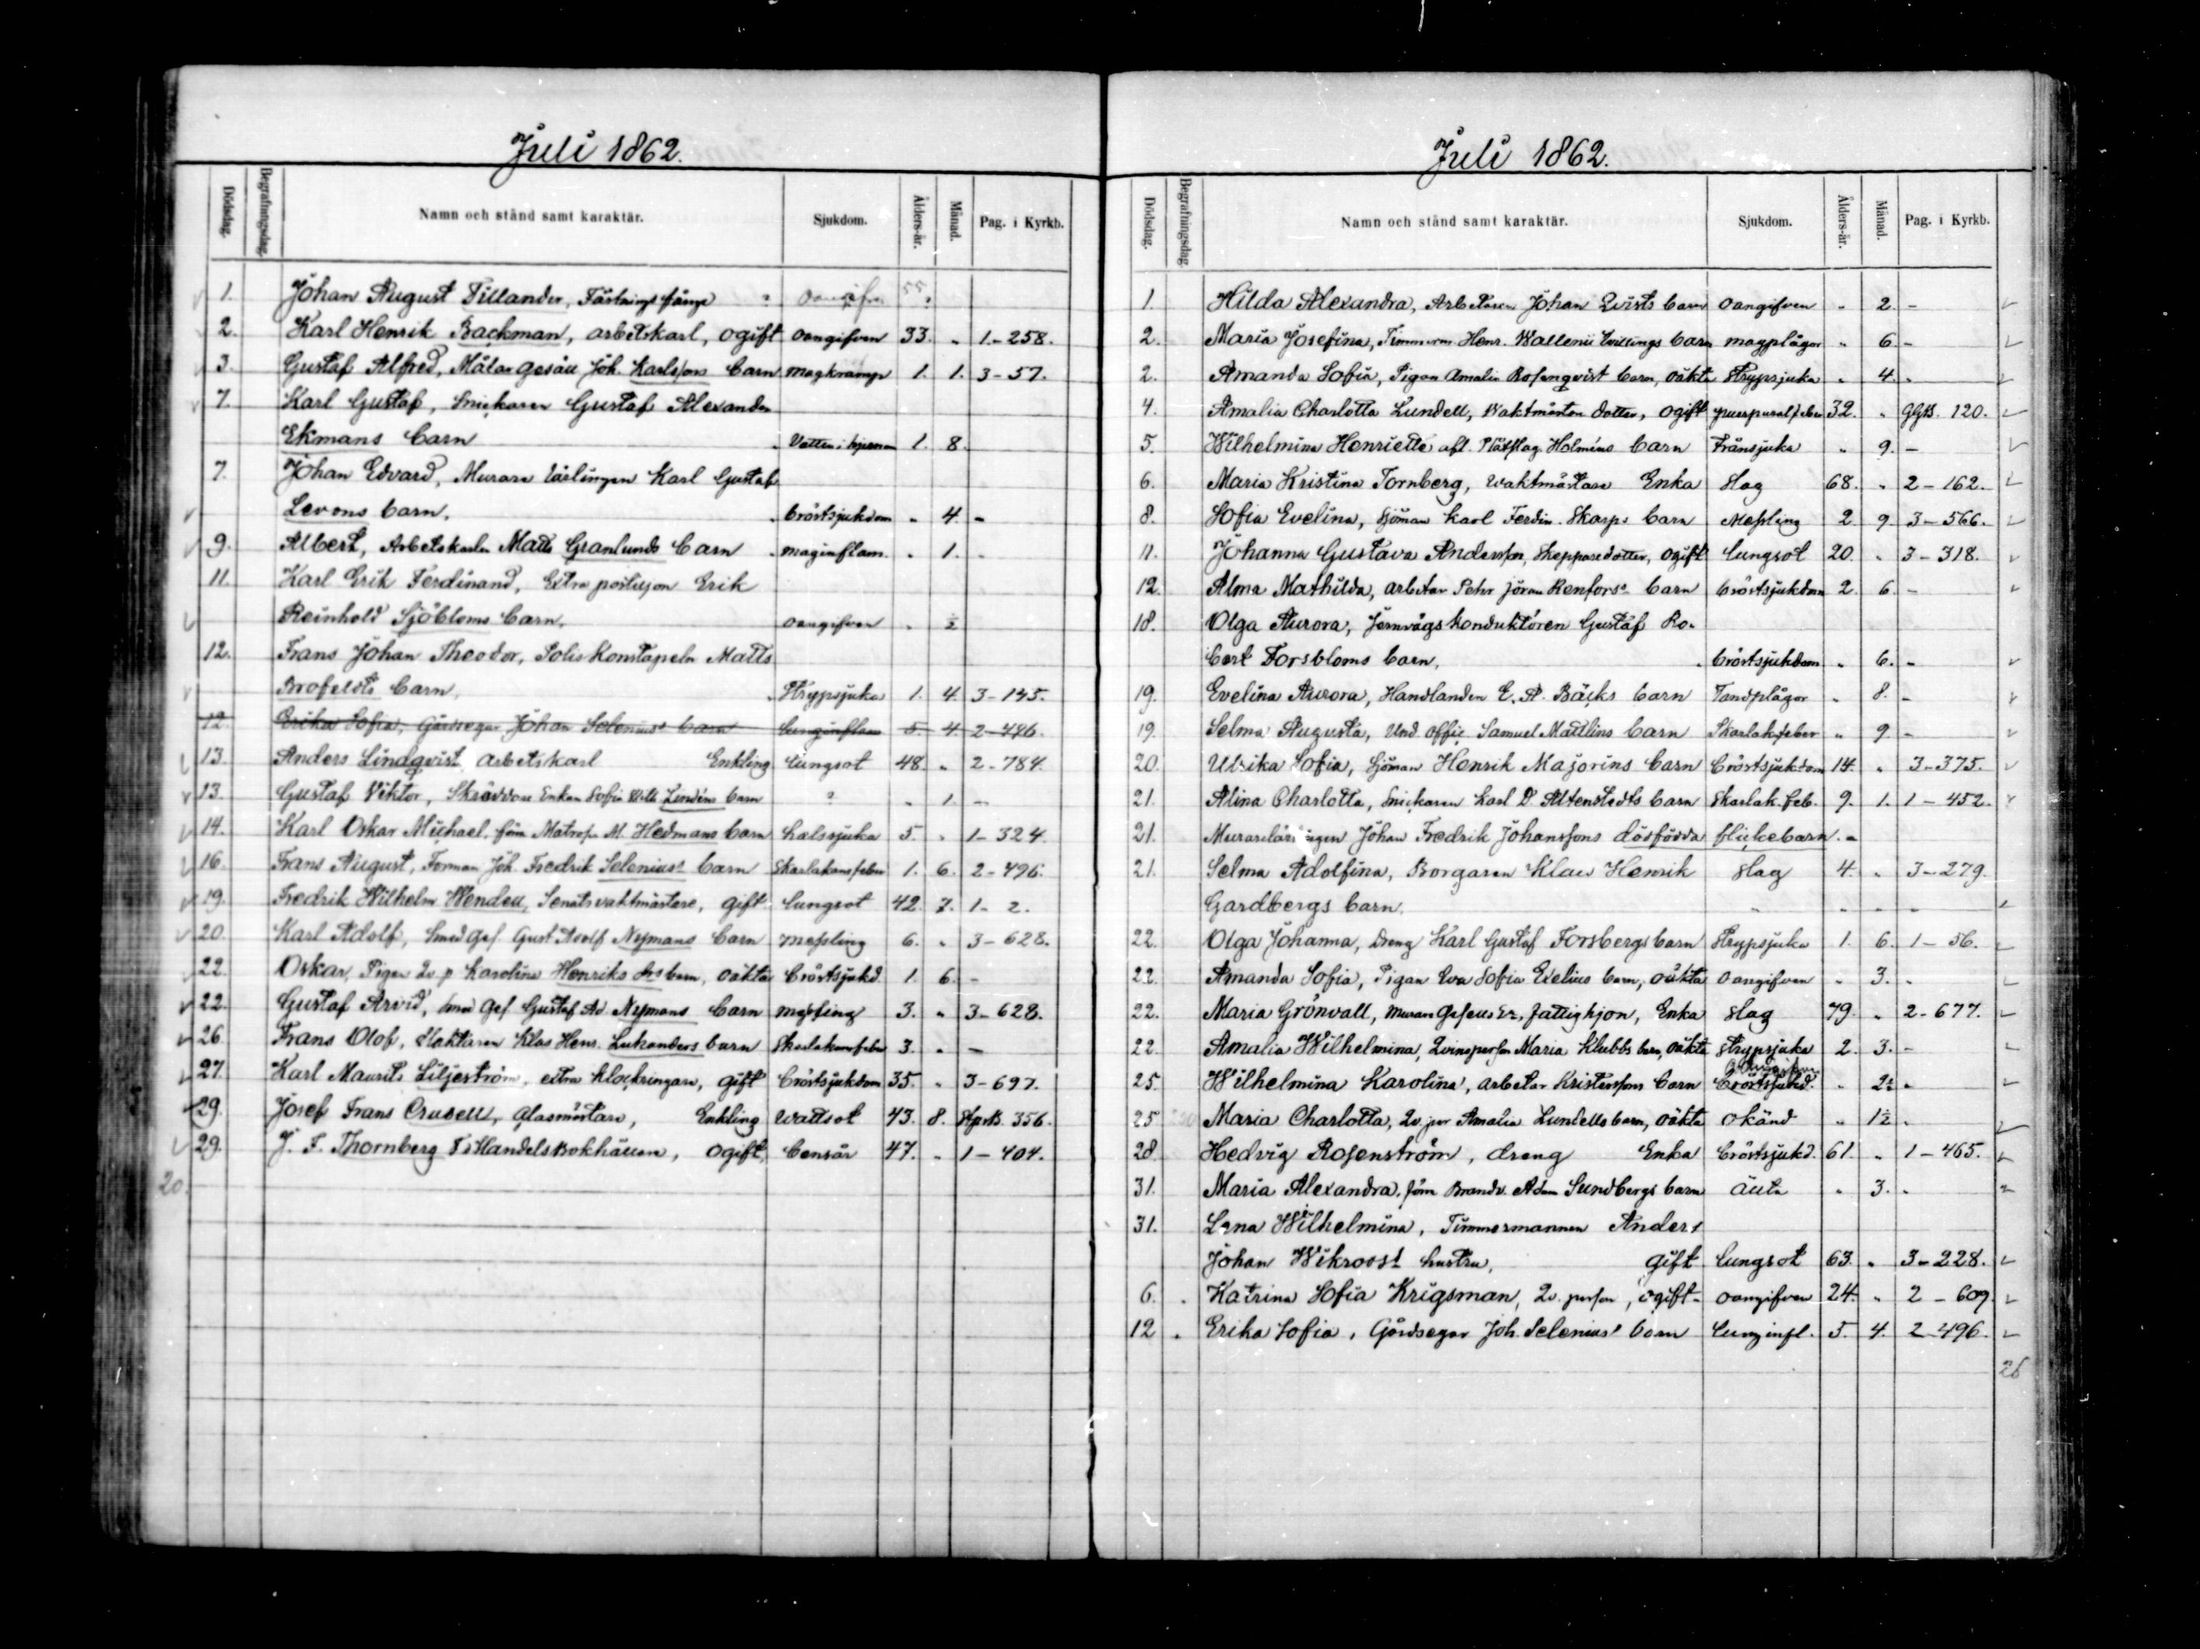 Juli 1862.
Dödsdag. Begrafningsdag. Namn och stånd samt karaktär. Sjukdom. Ålders-år. Månad. Pag. i Kyrkb.
1. Johan August Tillander, Fästningsfånge 55
2. Karl Henrik Backman, arbetskarl, ogift oangifven 33. " 1-258.
3. Gustaf Alfred, Målaregesäll Joh. Karlssons barn magkramp 1. 1. 3-57.
7. Karl Gustaf, Snickaren Gustaf Alexander
Ekmans barn Vatten i hjernan 1. 8.
7. Johan Edvard, Murare lärlingen Karl Gustaf
Levons barn. bröstsjukdom " 4. -
9. Albert, Arbetskarlen Matts Granlunds barn maginflam. " 1. -
11. Karl Erik Ferdinand, Extra postiljon Erik
Reinhold Sjöbloms barn. oangifven " ½
12. Frans Johan Theodor, Poliskonstapeln Matts
Brofeldts barn, Strypsjuka 1. 4. 3-145.
12. Erika Sofia, Gårdsegar Johan Selenius' barn lunginflam 5. 4 2-496.
13. Anders Lindqvist arbetskarl Enkling lungsot 48. " 2-784.
13. Gustaf Viktor, Skräddare Enkan Sofia Lindéns barn ? " 1. -
14. Karl Oskar Michael, förn Matros M. Hedmans barn halssjuka 5. " 1-324.
16. Frans August, Forman Joh. Fredrik Selenius' barn Skarlakansfeber 1. 6. 2-496.
19. Fredrik Wilhelm Wendell, Senatsvaktmästare, gift lungsot 42. 7. 1- 2.
20. Karl Adolf, Smed Ges. Gust Adolf Nymans barn messling 6. " 3-628.
22. Oskar, Pigan Qv. p Karolina Henriks dr barn, oäkta bröstsjukd. 1. 6. -
22. Gustaf Arvid, Smed Ges Gustaf Ad. Nymans barn messling 3. " 3-628.
26. Frans Olof, Slaktaren Klas Henr. Luhanders barn Skarlakansfeber 3. " -
27. Karl Maurits Liljeström, extra klockringare, gift bröstsjukdom 35. " 3-697.
29. Josef Frans Crusell, Glasmästare, Enkling Wattsot 43. 8. 356.
29. J. F. Thornberg Handelsbokhållare, ogift, 47. " 1-404.
20.
Juli 1862.
Dödsdag. Begrafningsdag Namn och stånd samt karaktär. Sjukdom. Ålders-år. Månad. Pag. i Kyrkb.
1. Hilda Alexandra, Arbetaren Johan Qvists barn oangifven " 2. -
2. Maria Josefina, Timmerm. Henr. Wallenii tvillings barn magplågor " 6. -
2. Amanda Sofia, Pigan Amalia Rosenqvist barn, oäkta Strypsjuka " 4. "
4. Amalia Charlotta Lundell, Vaktmästare dotter, ogift puerpuralfeber 32. " GGB. 120.
5. Wilhelmina Henriette afl. Plåtslag. Holméns barn Frånsjuka " 9. -
6. Maria Kristina Tornberg, Waktmästare Enka Slag 68. " 2-162.
8. Sofia Evelina, Sjöman Karl Ferdin. Skarps barn Messling 2 9. 3-566.
11. Johanna Gustava Andersson, Skepparedotter, ogift lungsot 20. " 3-318.
12. Alma Mathilda, arbetar Petr Jöran Renfors' barn bröstsjukdom 2. 6. -
18. Olga Aurora, Jernvägskonduktören Gustaf Ro-
bert Forsbloms barn, bröstsjukdom " 6. -
19. Evelina Aurora, Handlanden E. A. Bäcks barn Tandplågor " 8. -
19. Selma Augusta, Und. Offic Samuel Mattlins barn Skarlakfeber " 9. -
20. Ulrika Sofia, Sjöman Henrik Majorins barn bröstsjukdom 14. " 3-375.
21. Alina Charlotta, Snickaren Karl D. Altenstedts barn Skarlak. feb. 9. 1. 1-452.
21. Murarelärlingen Johan Fredrik Johanssons dödfödda flickebarn. -
21. Selma Adolfina, Borgaren Klas Henrik Slag 4. " 3-279.
Gardbergs barn. " " " " -
22. Olga Johanna, Dreng Karl Gustaf Forsbergs barn Strypsjuka 1. 6. 1-56.
22. Amanda Sofia, Pigan Eva Sofia Exelius barn, oäkta oangifven " 3. "
22. Maria Grönvall, Murare Gesells Enk., fattighjon, Enka Slag 79. " 2-677.
22. Amalia Wilhelmina, Qvinsperson Maria Klubbs barn, oäkta Strypsjuka 2. 3. -
25. Wilhelmina Karolina, arbetar Kristerssons barn bröstsjukd. " 2½ "
25 Maria Charlotta, Qv. per Amalia Lundells barn, oäkta okänd " 1½ "
28. Hedvig Rosenström, dreng Enka bröstsjukd. 61. " 1-465.
31. Maria Alexandra, förn Brandv. Adam Sundbergs barn älta " 3. "
31. Lena Wilhelmina, Timmermannen Anders
Johan Wikroos' hustru, gift lungsot 63. " 3-228.
6. Katrina Sofia Krigsman, Qv. person, ogift- oangifven 24. " 2-609.
12 Erika Sofia, Gårdsegar Joh. Selenius' barn lunginfl. 5. 4. 2-496.
26